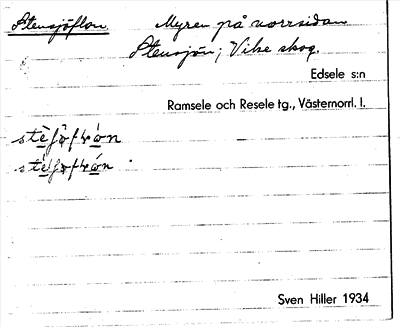 Stensjöflon Myren på norrsidan
Stensjön; Vike skog.
Edsele s:n
Ramsele och Resele tg., Västernorrl. l.
Sven Hiller 1934